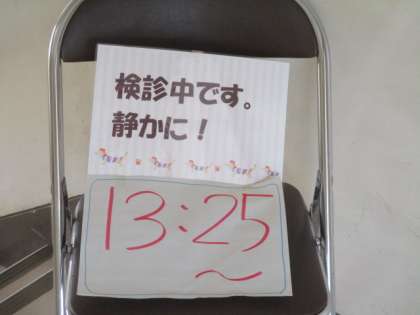 検診中です。
静かに！
13:25
～